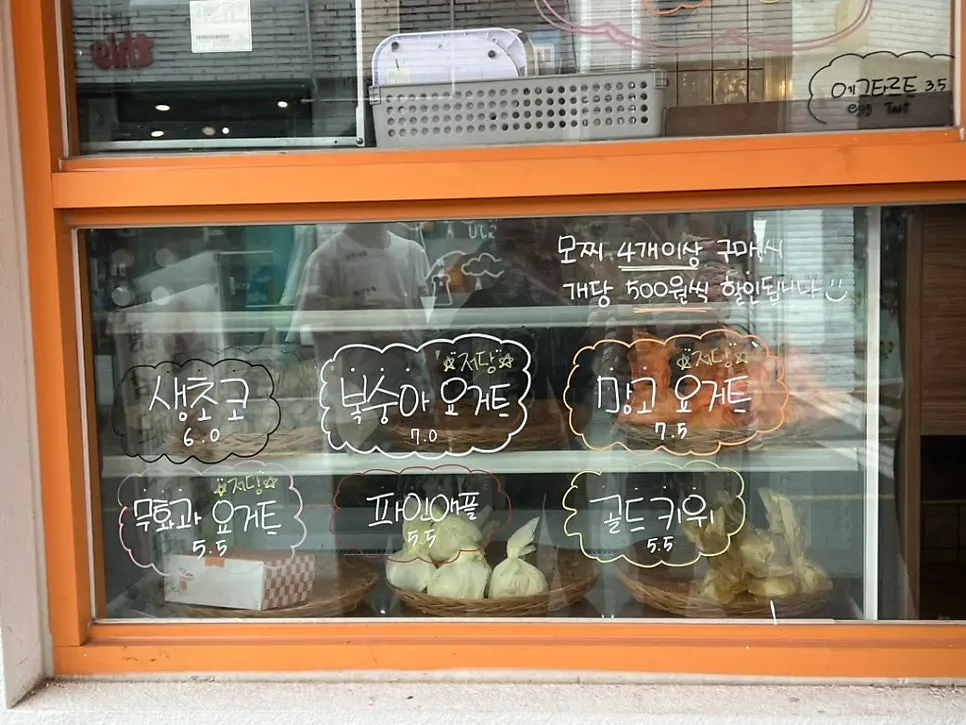 this
에그타르트 3.5
egg Tart
모찌 4개이상 구매시
개당 500원씩 할인됩니다
생초코
6.0
저당
복숭아 요거트
7.0
저당
망고 요거트
7.5
저당
무화과 요거트
5.5
파인애플
5.5
골드키위
5.5